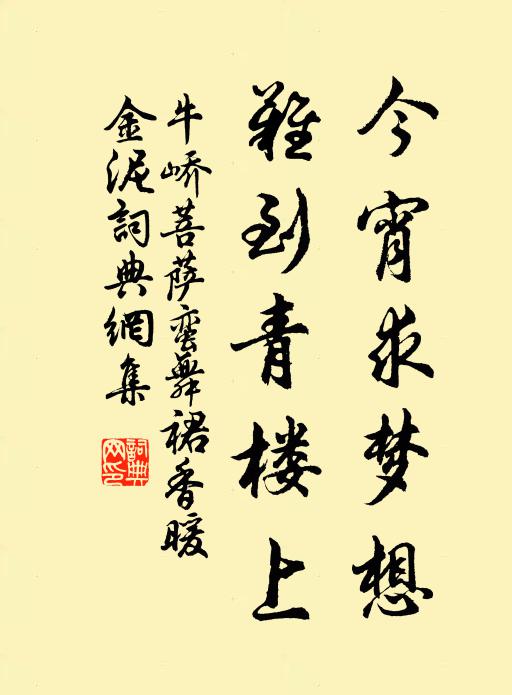 今宵求梦想
难到青楼上
牛峤菩萨蛮舞裙香暖
金泥詞典網集
詞典網印